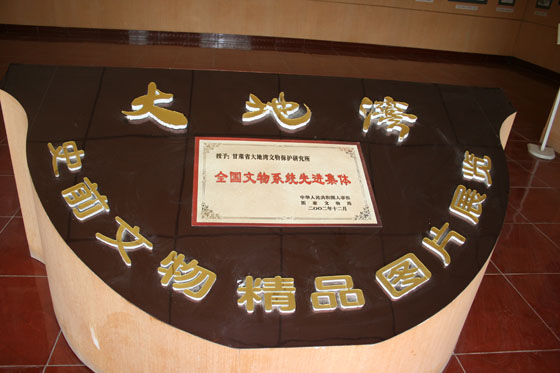 大地湾
授予：甘肃省大地湾文物保护研究所
全国文物系统先进集体
中华人民共和国人事部
国家文物局
二〇〇二年十二月
史前文物精品图片展览